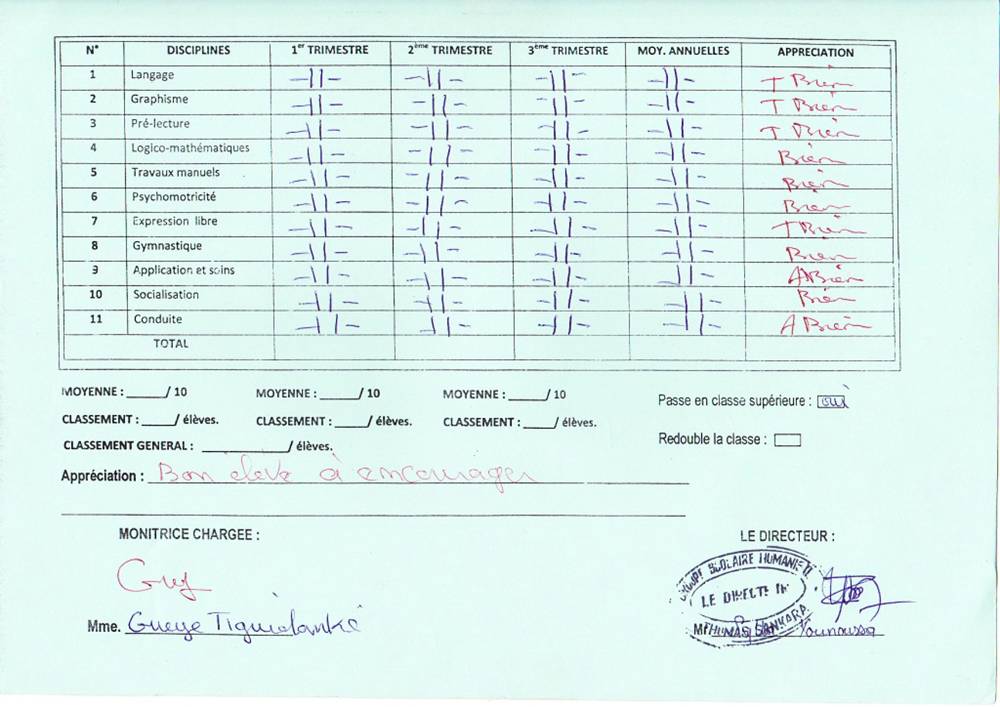 N° DISCIPLINES 1er TRIMESTRE 2ème TRIMESTRE 3ème TRIMESTRE MOY. ANNUELLES APPRECIATION
1 Langage -||- -||- -||- -||- T Bien
2 Graphisme -||- -||- -||- -||- T Bien
3 Pré-lecture -||- -||- -||- -||- T Bien
4 Logico-mathématiques -||- -||- -||- -||- Bien
5 Travaux manuels -||- -||- -||- -||- Bien
6 Psychomotricité -||- -||- -||- -||- Bien
7 Expression libre -||- -||- -||- -||- T Bien
8 Gymnastique -||- -||- -||- -||- Bien
9 Application et soins -||- -||- -||- -||- A Bien
10 Socialisation -||- -||- -||- -||- Bien
11 Conduite -||- -||- -||- -||- A Bien
TOTAL
MOYENNE : _____/ 10 MOYENNE : _____/ 10 MOYENNE : _____/ 10
Passe en classe supérieure : oui
CLASSEMENT : _____/ élèves. CLASSEMENT : _____/ élèves. CLASSEMENT : _____/ élèves.
Redouble la classe :
CLASSEMENT GENERAL : _____________/ élèves.
Appréciation : Bon élève à encourager
MONITRICE CHARGEE : LE DIRECTEUR :
Guy
GROUPE SCOLAIRE HUMANITE
LE DIRECTEUR
THOMAS SANKARA
Mme. Gueye Tiguidanké
M. Younoussa